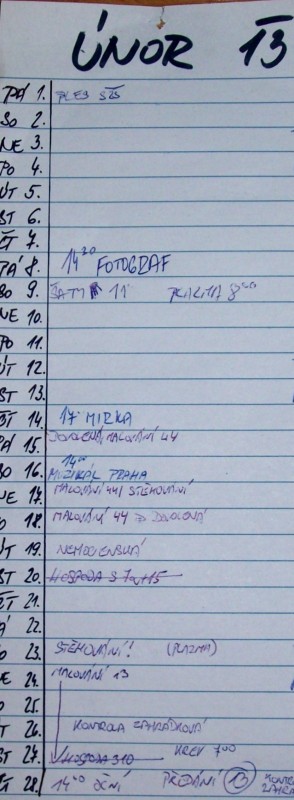 ÚNOR 13
PÁ 1. PLES SŠS
SO 2.
NE 3.
PO 4.
ÚT 5.
ST 6.
ČT 7.
PÁ 8. 14³⁰ FOTOGRAF
SO 9. ŠATY 11
NE 10.
PO 11.
ÚT 12.
ST 13.
ČT 14. 17 MIRKA
PÁ 15. DOVOLENÁ MALOVÁNÍ 44
SO 16. 14°° MUZIKÁL PRAHA
NE 17. MALOVÁNÍ 44 / STĚHOVÁNÍ
O 18. MALOVÁNÍ 44 DOVOLENÁ
ÚT 19. NEMOCENSKÁ
ST 20. HOSPODA S
ČT 21.
Á 22.
O 23. STĚHOVÁNÍ! (PLAZMA)
E 24. MALOVÁNÍ 13
25.
T 26. KONTROLA ZAHRÁDKOVÁ
ST 27. HOSPODA 310 KREV 700
ČT 28. 14⁰⁰ OČNÍ PŘEDÁNÍ 13